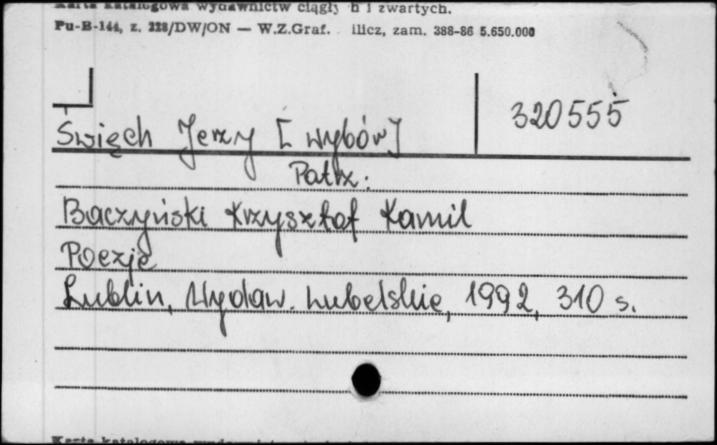 Karta katalogowa wydawnictw ciągły h i zwartych.
Pu-B-144, z. 228/DW/ON — W.Z.Graf. ilicz, zam. 388-86 5.650.000
320555
Święch Jerzy [wybór]
Patrz:
Baczyński Krzysztof Kamil
Poezje
Lublin, Wydaw. Lubelskie, 1992, 310 s.
Karta katalogowa